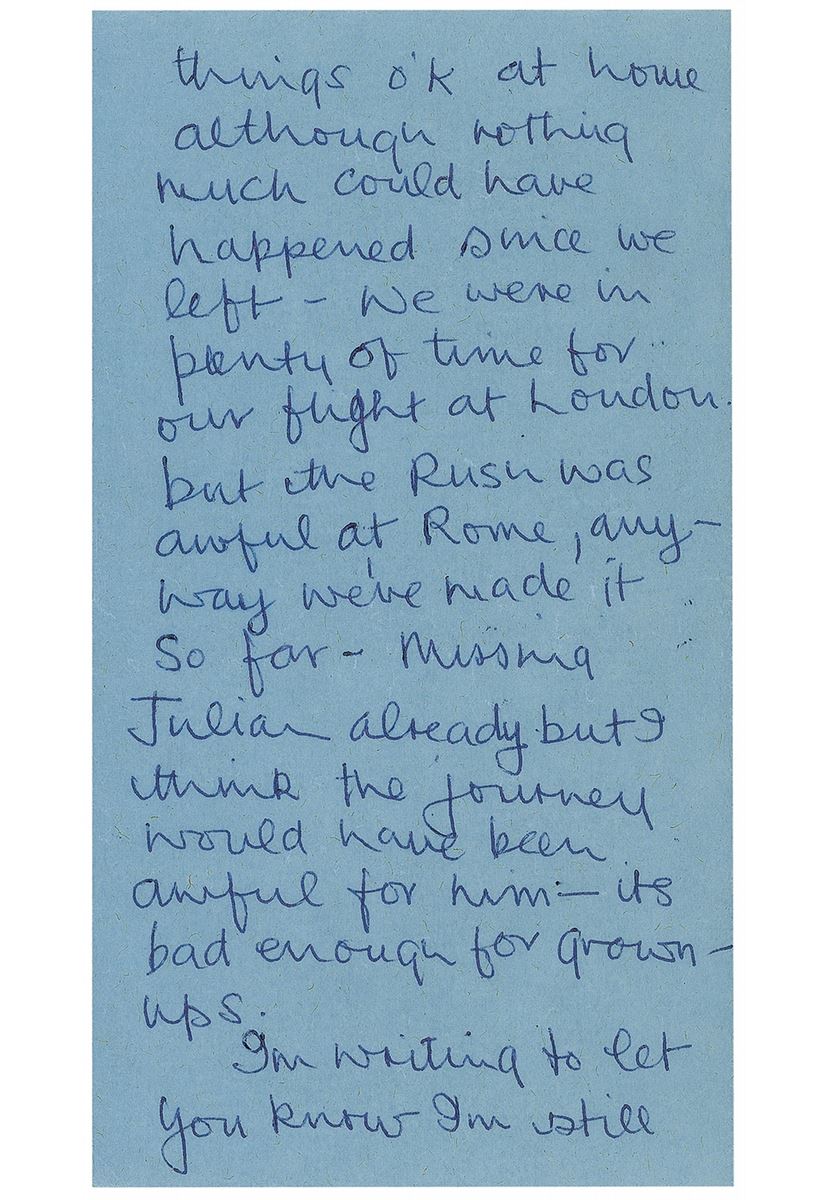 things o'k at home
although nothing
much could have
happened since we
left - We were in
plenty of time for
our flight at London.
but the Rush was
awful at Rome, any-
way we've made it
so far - Missing
Julian already but I
think the journey
would have been
awful for him - its
bad enough for grown-
ups.
Im writing to let
you know Im still